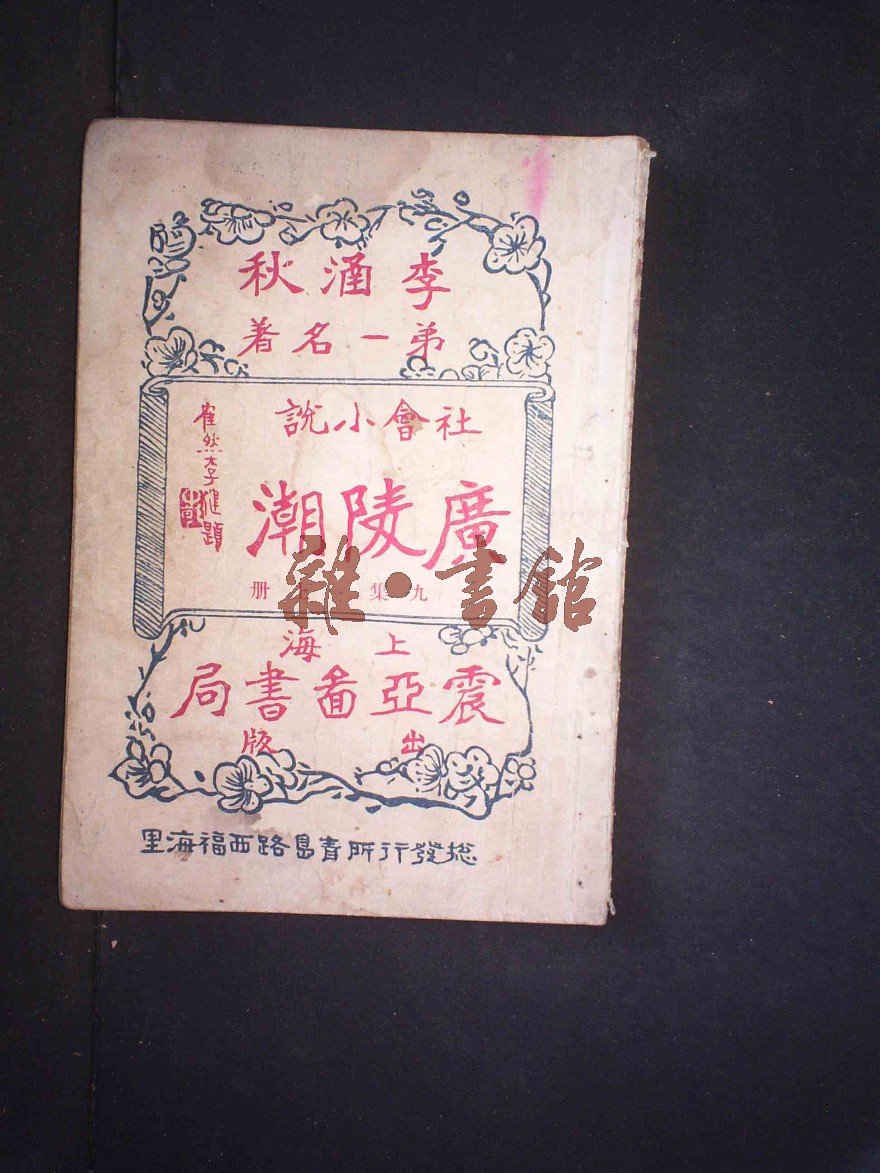 李涵秋
弟一名著
社會小說
廣陵潮
九集 册
隺然李健題
上海
震亞啚書局
出版
総發行所青島路西福海里
雜·書館